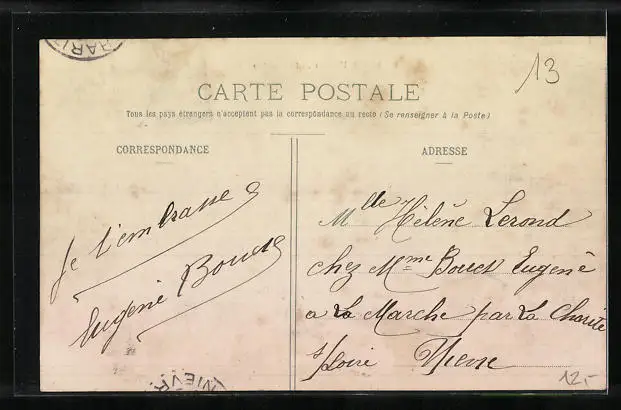 PARI
13
CARTE POSTALE
Tous les pays étrangers n'acceptent pas la correspondance au recto (Se renseigner à la Poste)
CORRESPONDANCE
Je t'embrasse
Eugène Bouet
ADRESSE
Mlle Hélène Lerond
chez Mme Bouet Eugène
a La Marche par La Charité
s/Loire Nièvre
NIEVR
12.-